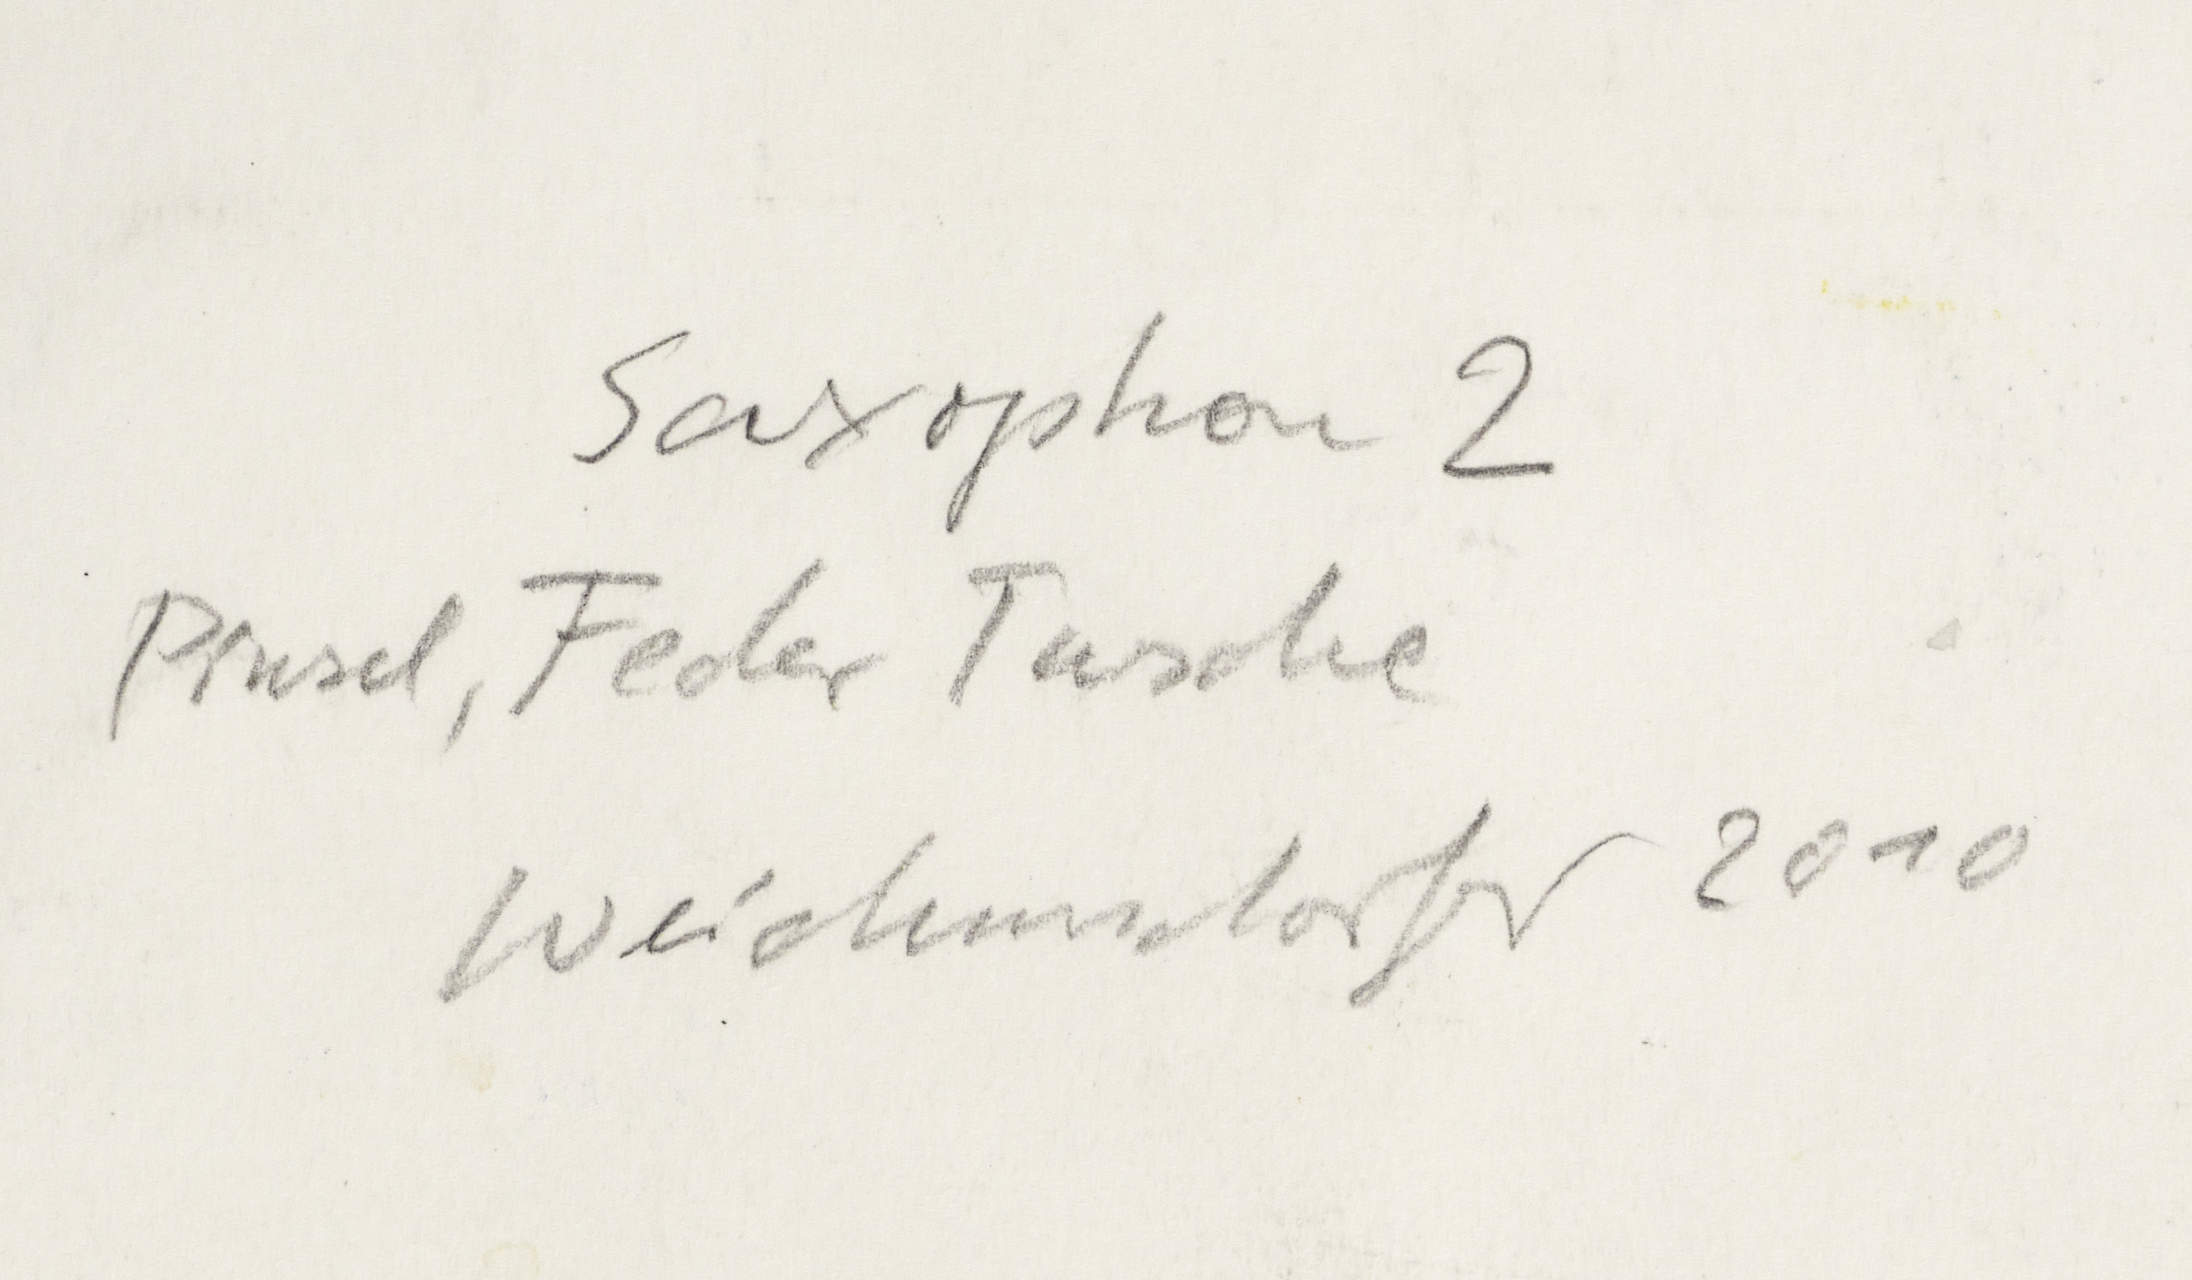 Saxophon 2
Pinsel, Feder Tusche
Weichmsdorfer 2010